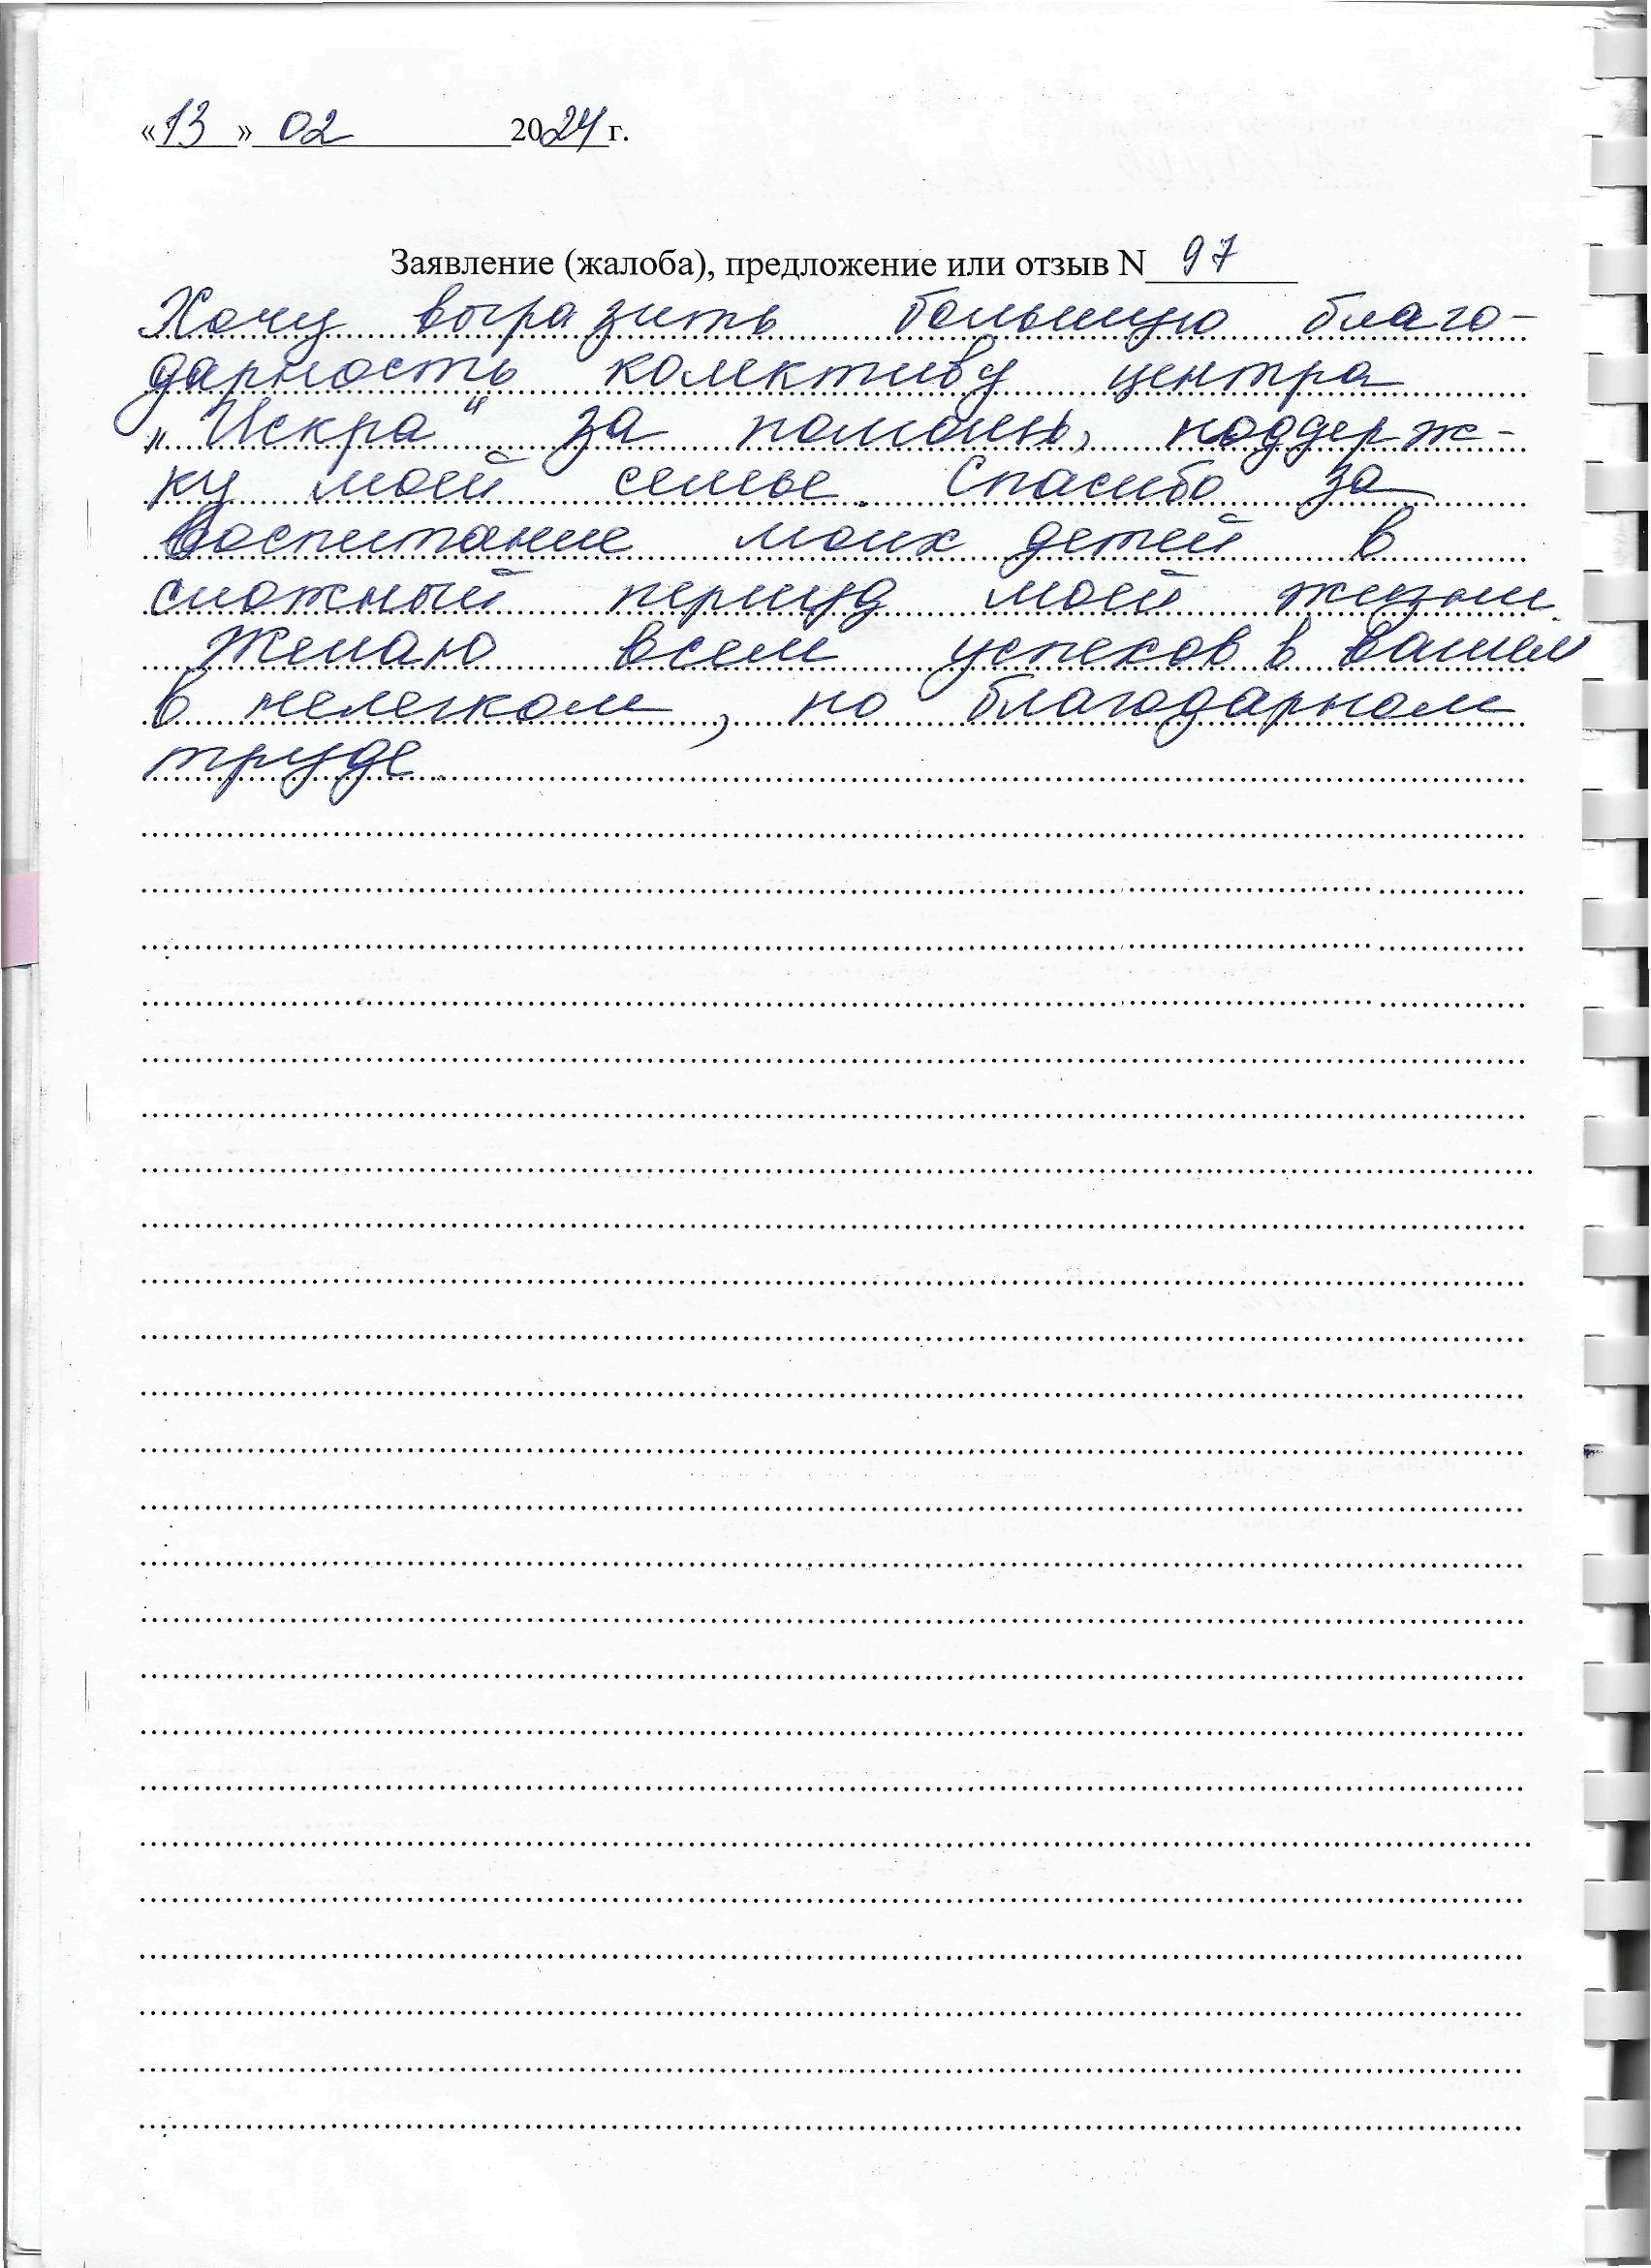 «13» 02 2024 г.
Заявление (жалоба), предложение или отзыв N 97
Хочу выразить большую благо-
дарность колективу центра
„Искра“ за помощь, поддерж-
ку моей семье. Спасибо за
воспитание моих детей в
сложный период моей жизни.
Желаю всем успехов в вашем
в нелегком, но благодарном
труде